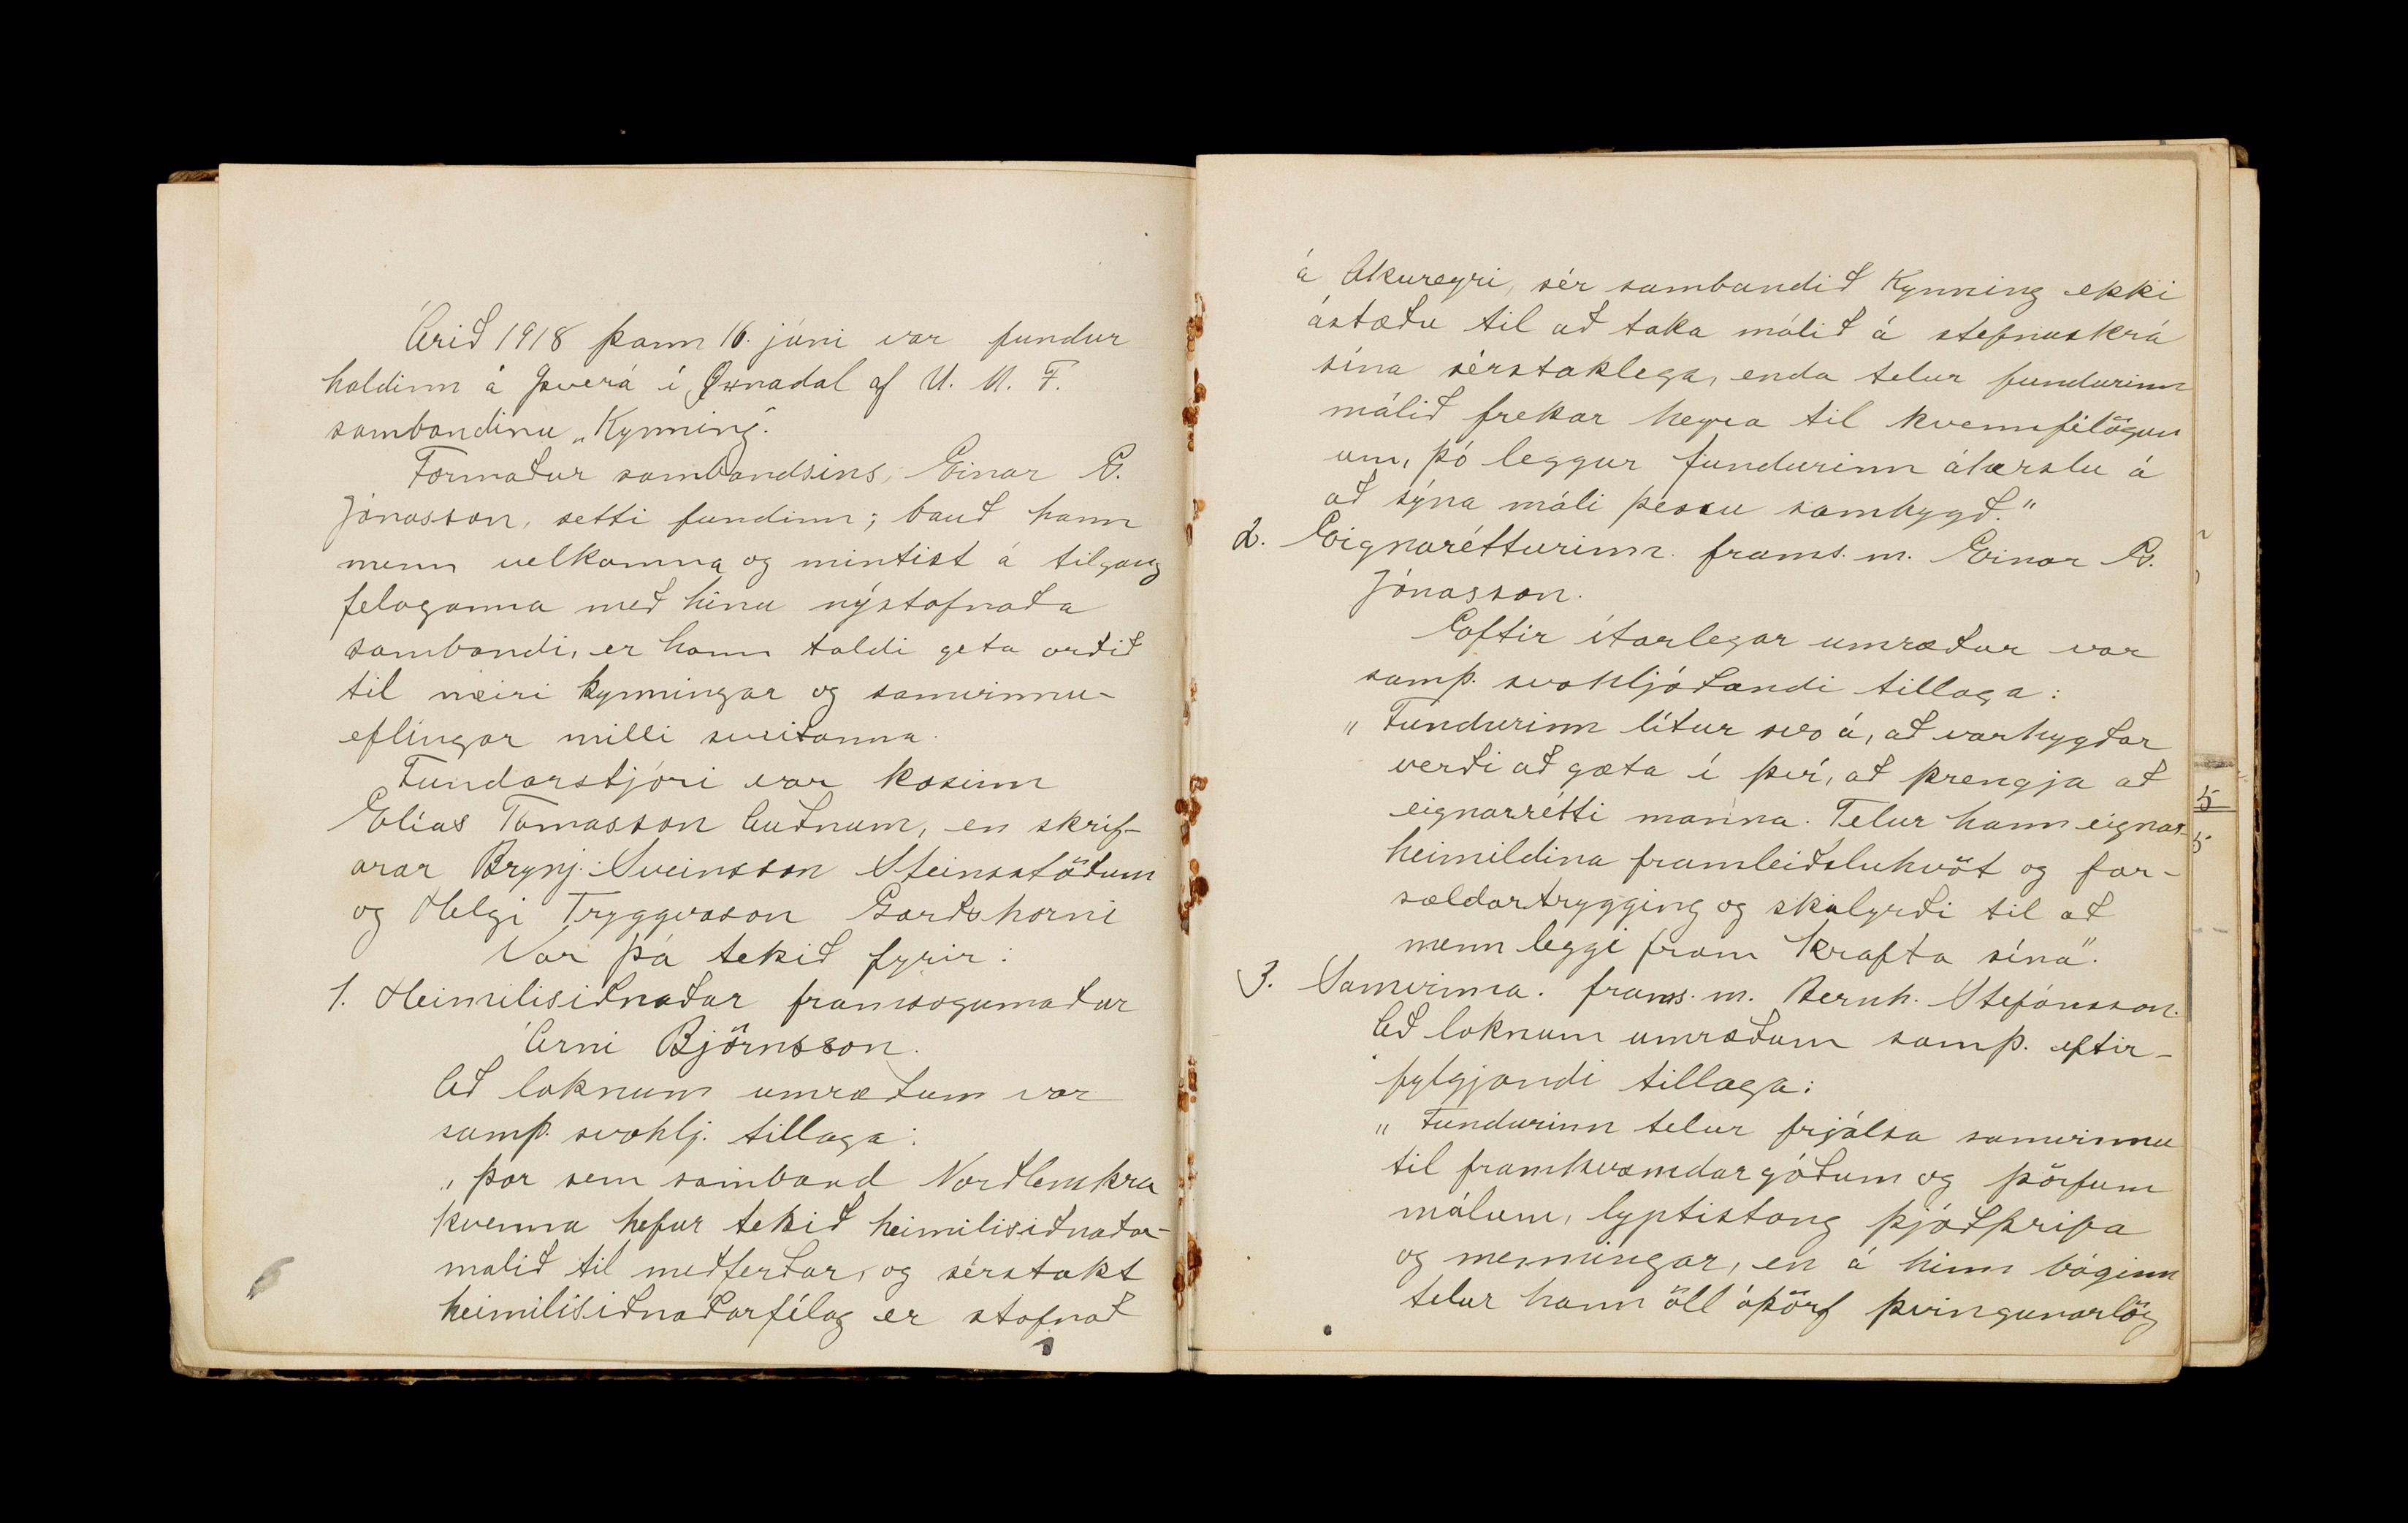 Árið 1918 þann 16. júni var fundur
haldinn á Þverá í Öxnadal af U. M. F.
sambandinu „Kynning".
Formaður sambandsins, Einar G.
Jónasson, setti fundinn; bauð hann
menn velkomna og mintist á tilgang
felaganna með hinu nýstofnaða
sambandi, er hann taldi geta orðið
til meiri kynningar og samvinnu-
eflingar milli sveitanna.
Fundarstjóri var kosinn
Elías Tómasson Auðnum, en skrif-
arar Brynj. Sveinsson Steinsstöðum
og Helgi Tryggvason Garðshorni
Var þá tekið fyrir:
1. Heimilisiðnaður framsogumaður
Árni Björnsson.
Að loknum umræðum var
samþ. svohlj. tillaga:
„Þar sem samband Norðlenskra
kvenna hefur tekið heimilisiðnaðar-
malið til meðferðar, og sérstakt
heimilisiðnaðarfélag er stofnað
á Akureyri, sér sambandið Kynning ekki
ástæðu til að taka málið á stefnuskrá
sína sérstaklega, enda telur fundurinn
málið frekar heyra til kvennfélögun
um, þó leggur fundurinn áherslu á
að sýna máli þessu samhygð."
2. Eignarétturinn. frams. m. Einar G.
Jónasson.
Eftir ítarlegar umræður var
samþ. svohljóðandi tillaga:
„Fundurinn lítur svo á, að varhygðar
verði að gæta í því, að þrengja að
eignarrétti manna. Telur hann eignar-
heimildina framleiðsluhvöt og far-
sældartrygging og skilyrði til að
menn leggi fram krafta sína".
3. Samvinna. frams. m. Bernh. Stefánsson.
Að loknum umræðum samþ. eftir-
fylgjandi tillaga:
„Fundurinn telur frjálsa samvinnu
til framkvæmdar góðum og þörfum
málum, lyptistöng þjóðþrifa
og menningar, en á hinn bóginn
telur hann öll óþörf þvingunarlög